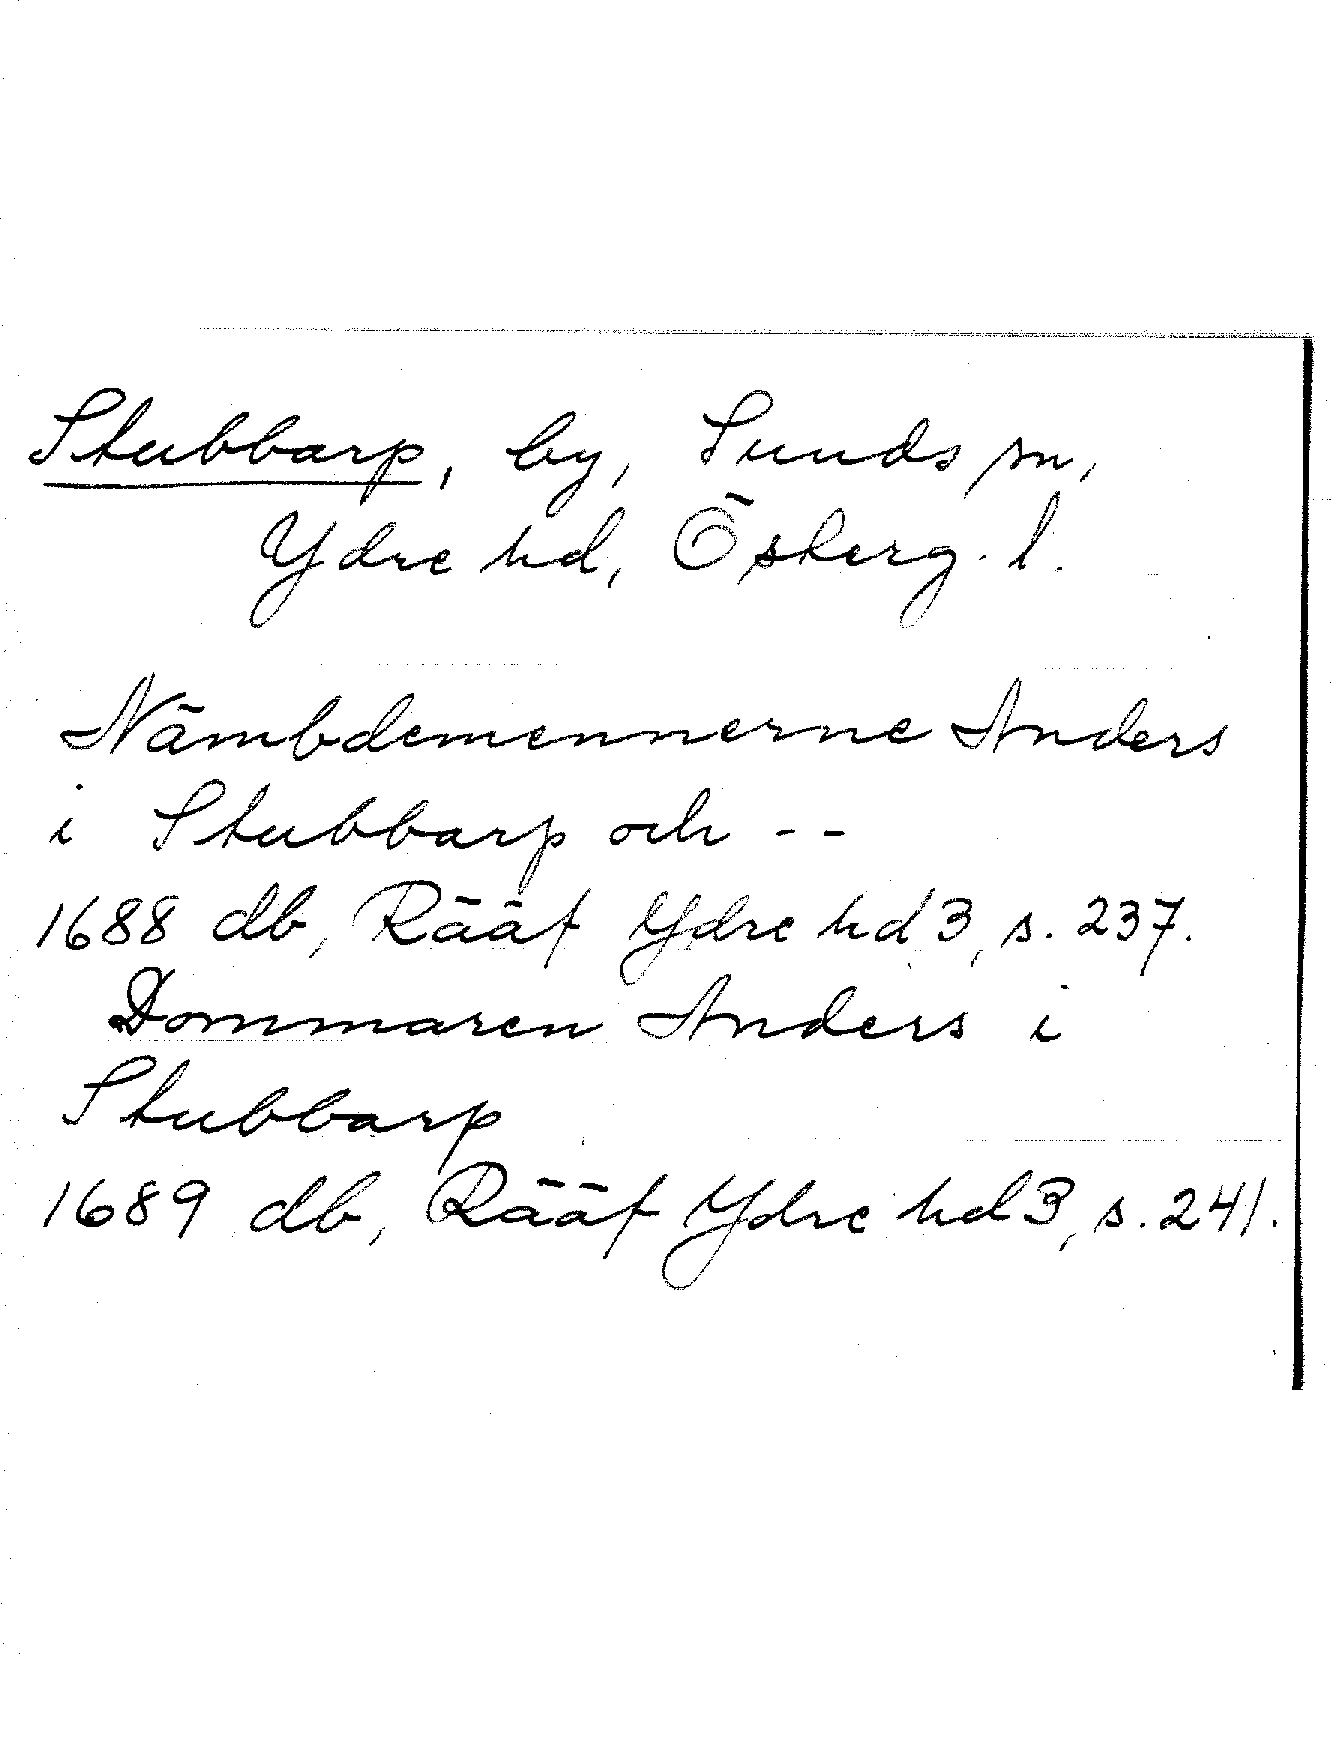 Stubbarp, by, Sunds sn,
Ydre hd, Österg. l.
Nämbdemennerne Anders
i Stubbarp och --
1688 db, Rääf Ydre hd 3, s. 237.
Dommaren Anders i
Stubbarp
1689 db, Rääf Ydre hd 3, s. 241.